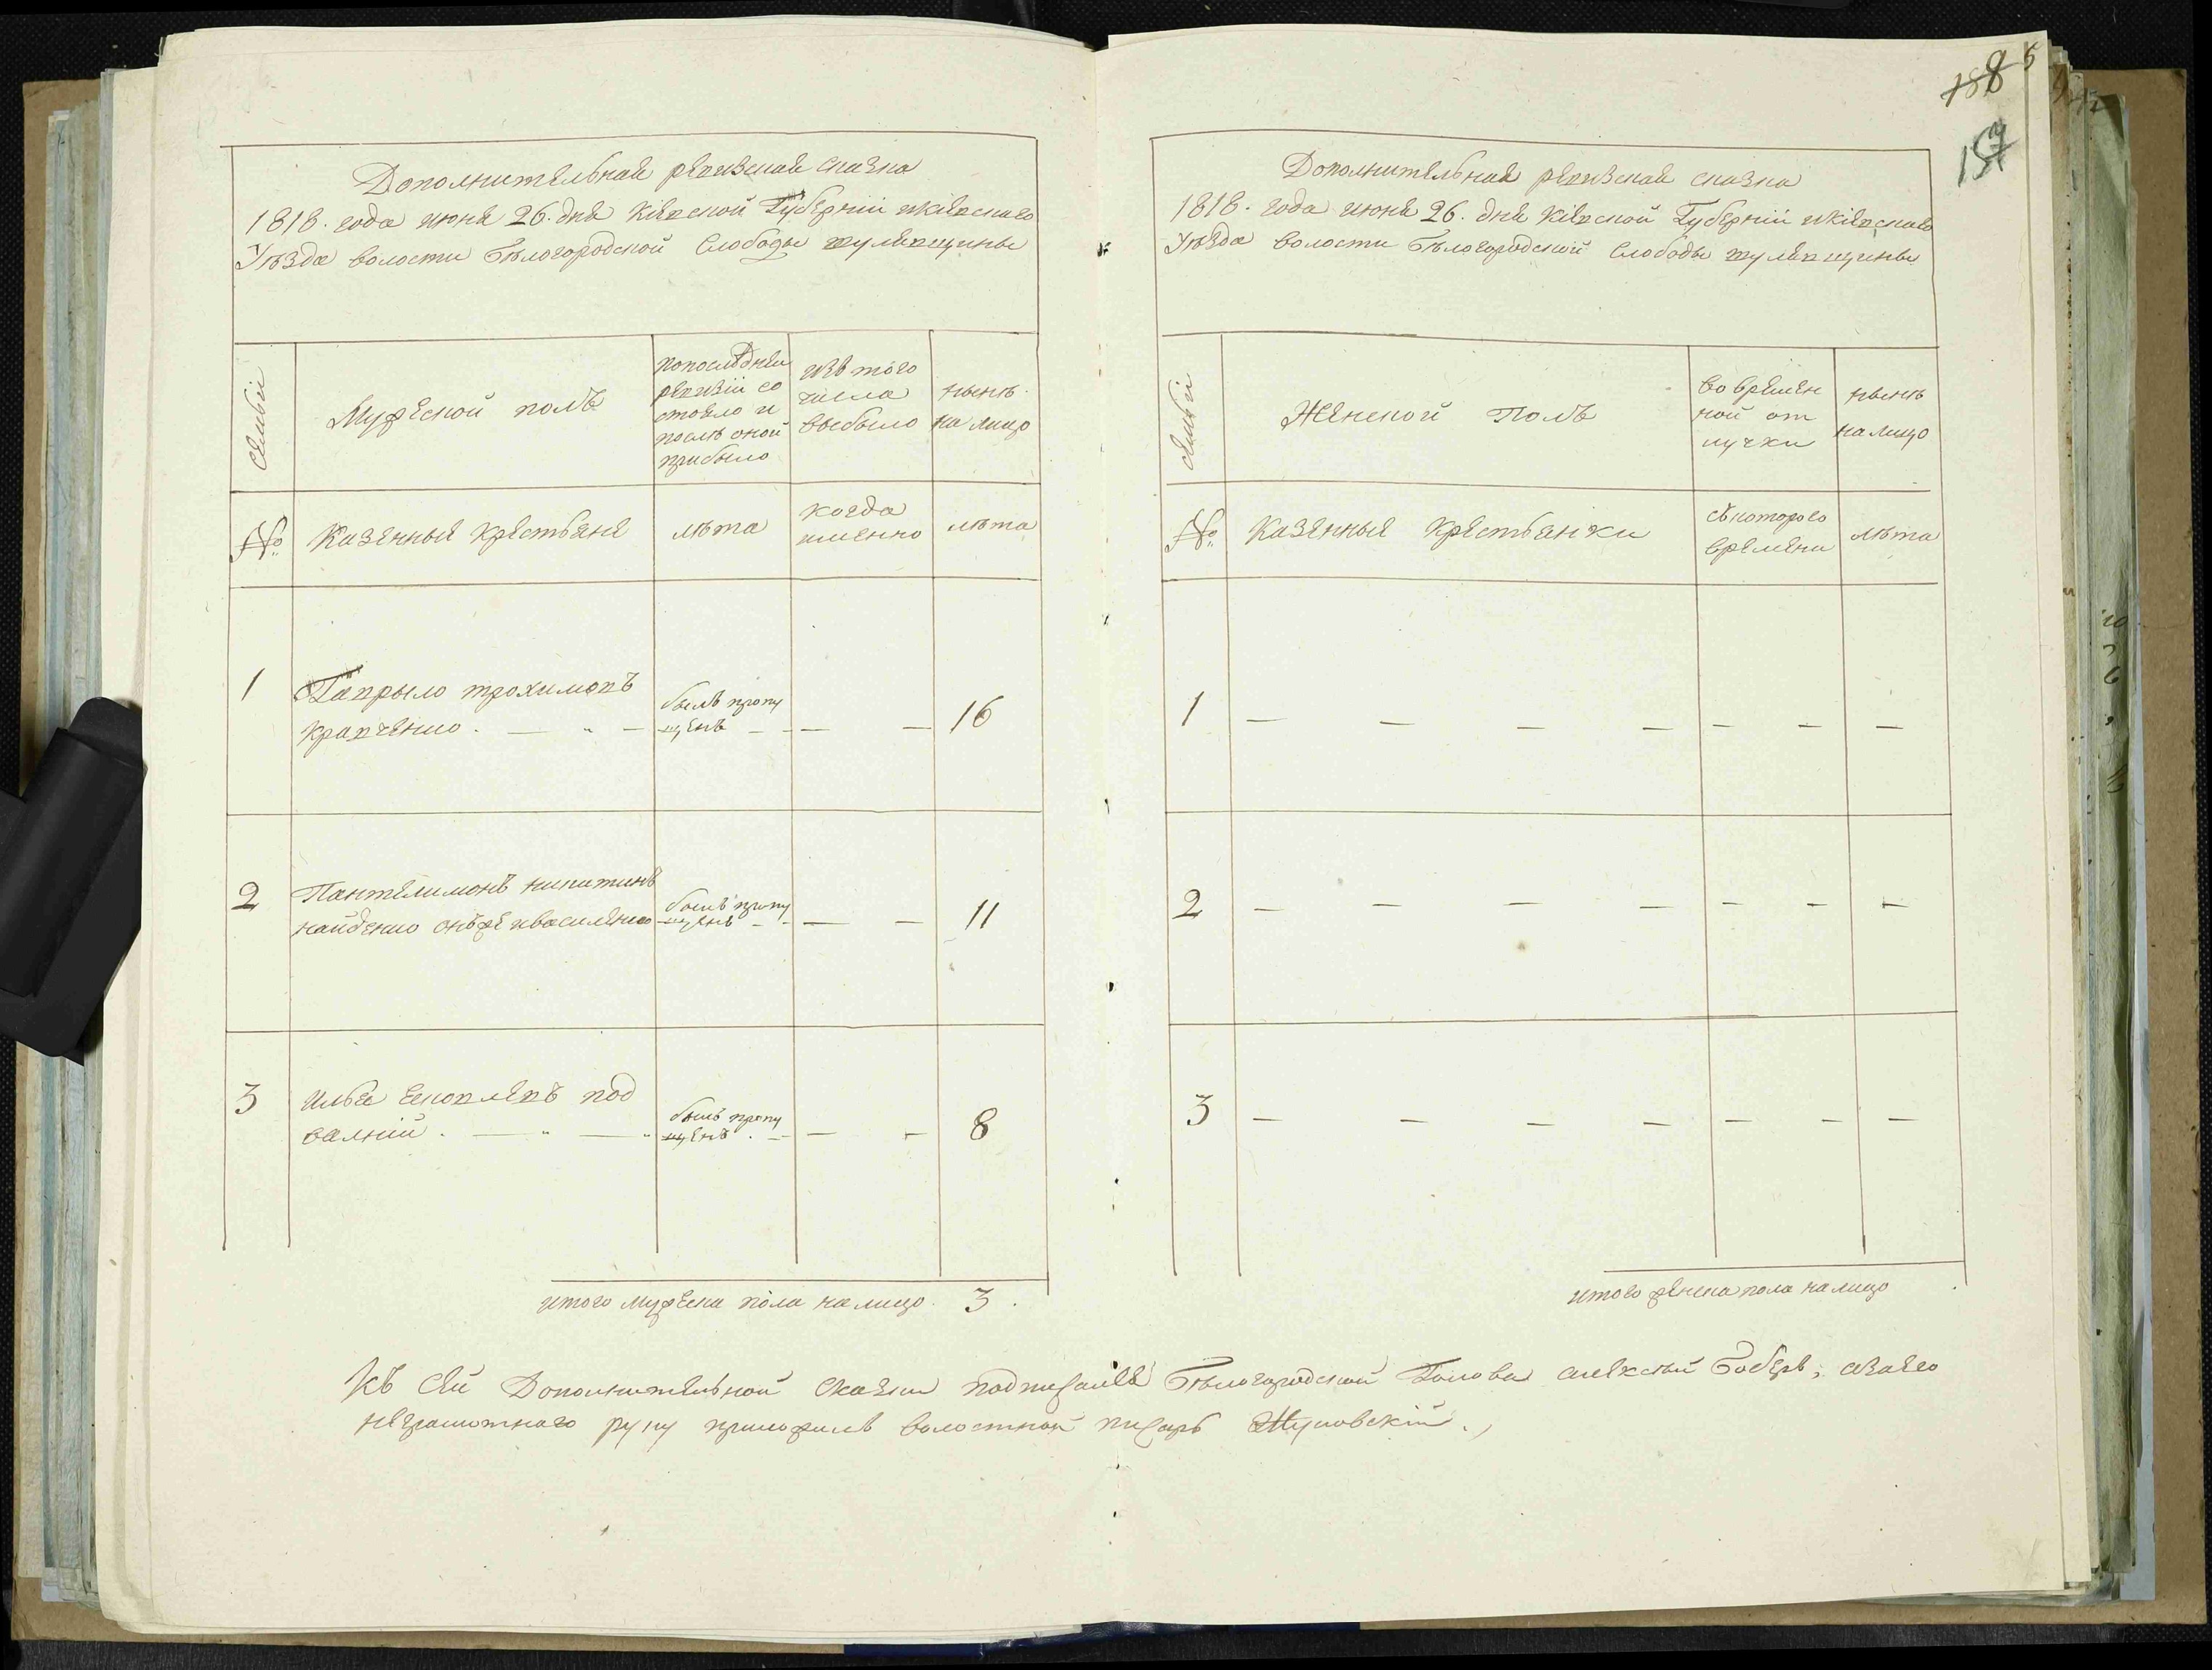 188 5
157
Дополнительная ревизская сказка
1818. года июня 26. дня Кiевской Губернiи и Кiевскаго
Уѣзда волости Бѣлогородской Слободы шулявщины
семьи
Мужеской полъ
по последней
ревизiи со
стояло и
послѣ оной
прибыло
изъ того
числа
выбыло
нынѣ
на лицо
№
Казенные крестьяне
лѣта
когда
именно
лѣта
1
Гаврыло трохимовъ
кравченко . — " —
былъ пропу
щенъ — —
— —
16
2
Пантелимонъ никитинъ
найденко онъже и василенко
былъ пропу
щенъ — —
— —
11
3
илья яковлевъ под
валнiй . — " — "
былъ пропу
щенъ . —
— —
8
итого мужеска пола на лицо . 3 .
Дополнительная ревизская сказка
1818. года июня 26. дня Кiевской Губернiи и Кiевскаго
Уѣзда волости Бѣлогородской Слободы шулявщины
семьи
Женской Полъ
во времен
ной от
лучки
нынѣ
на лицо
№
Казенные крестьянки
съ которого
времени
лѣта
1 — — — — — — —
2 — — — — — — —
3 — — — — — — —
итого женска пола на лицо
Къ сей Дополнительной сказки подписался Бѣлогородской Голова алексѣй Боберъ, а за его
неграмотнаго руку приложилъ волостной писарь Жуковскiй .,